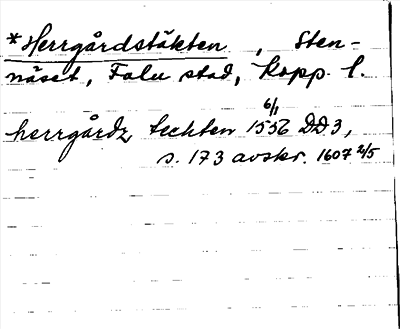 *Herrgårdstäkten, Sten-
näset, Falu stad, Kopp. l.
herrgårdz techten 1556 6/1 DD3,
s. 173 avskr. 1607 2/5